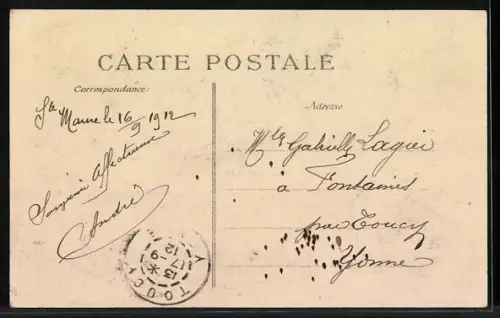 CARTE POSTALE
Correspondance
Adresse
Ste Maure le 16/9 1912
Souvenir affectueux
André
Mlle Gabrielle Lagier
à Fontaines
par Toucy
Yonne
TOUCY
13
17 - 9
12